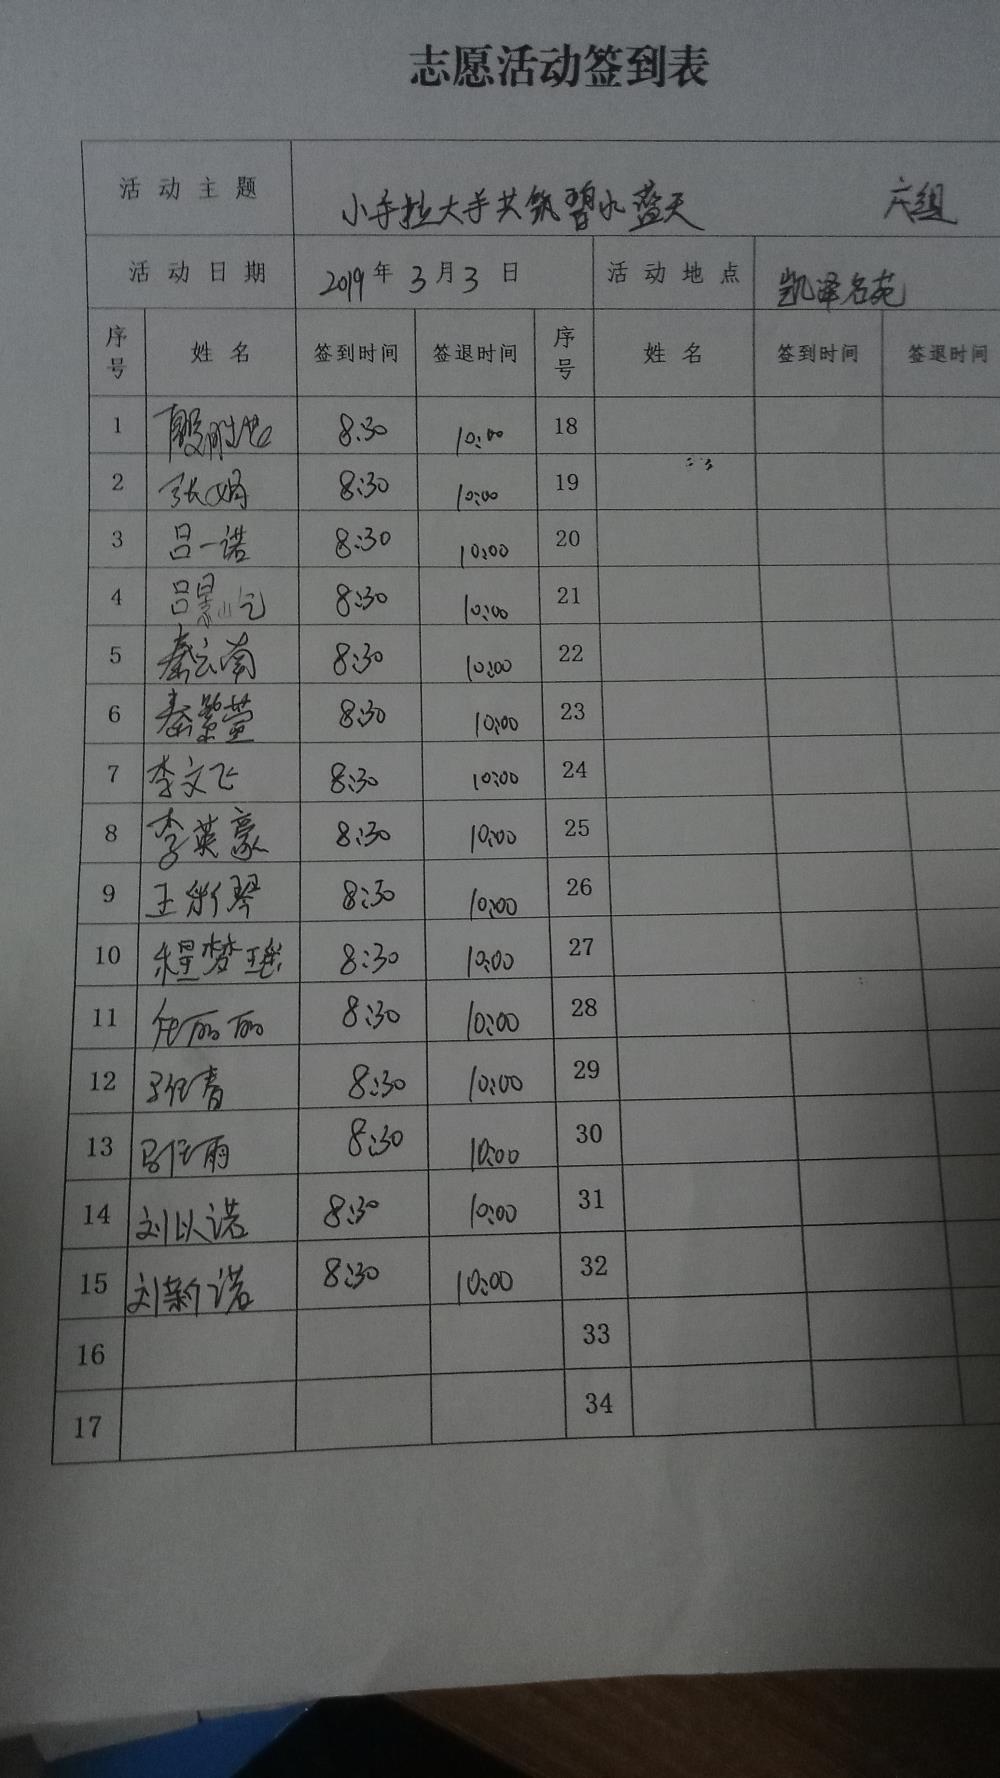 志愿活动签到表
活动主题 小手拉大手共筑碧水蓝天 六组
活动日期 2019年3月3日 活动地点 凯泽名苑
序号 姓名 签到时间 签退时间 序号 姓名 签到时间 签退时间
1 殷 8:30 10:00 18
2 张娟 8:30 10:00 19
3 吕一诺 8:30 10:00 20
4 吕景屹 8:30 10:00 21
5 秦云南 8:30 10:00 22
6 秦紫萱 8:30 10:00 23
7 李文飞 8:30 10:00 24
8 李英豪 8:30 10:00 25
9 王彩琴 8:30 10:00 26
10 程梦瑶 8:30 10:00 27
11 丽丽 8:30 10:00 28
12 青 8:30 10:00 29
13 雨 8:30 10:00 30
14 刘以诺 8:30 10:00 31
15 刘新诺 8:30 10:00 32
16 33
17 34